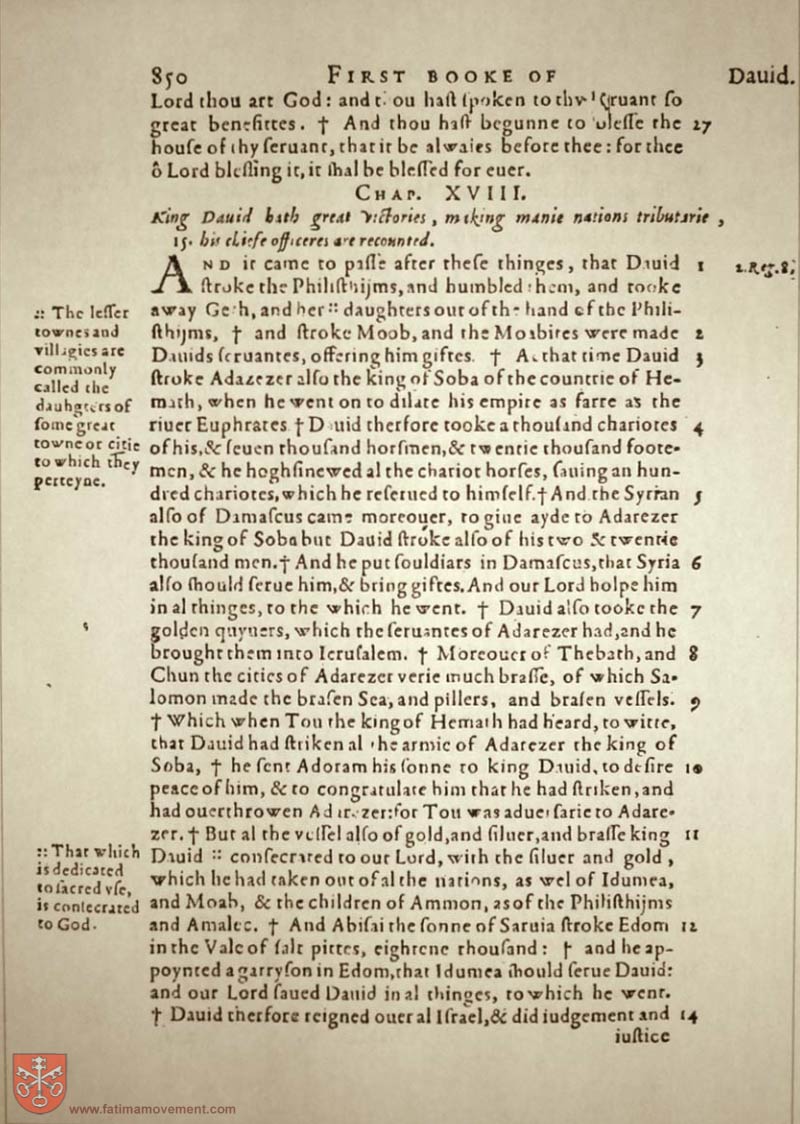 850 FIRST BOOKE OF Dauid.
Lord thou art God: and thou haſt ſpoken to thy ſeruant ſo
great benefittes. † And thou haſt begunne to bleſſe the 27
houſe of thy ſeruant, that it be alwaies before thee: for thee
ô Lord bleſſing it, it ſhal be bleſſed for euer.
CHAP. XVIII.
King Dauid hath great victories, making manie nations tributarie,
15. his chiefe officeres are recounted.
AND it came to paſſe after theſe thinges, that Dauid 1 2. Reg. 8.
ſtroke the Philiſthijms, and humbled them, and tooke
away Geth, and her :: daughters out of the hand of the Phili-
ſthijms, † and ſtroke Moab, and the Moabites were made 2
Dauids ſeruantes, offering him giftes. † At that time Dauid 3
ſtroke Adarezer alſo the king of Soba of the countrie of He-
math, when he went on to dilate his empire as farre as the
riuer Euphrates † Dauid therfore tooke a thouſand chariotes 4
of his, & ſeuen thouſand horſmen, & twentie thouſand foote-
men, & he hoghſinewed al the chariot horſes, ſauing an hun-
dred chariotes, which he reſerued to himſelf. † And the Syrian 5
alſo of Damaſcus came moreouer, to giue ayde to Adarezer
the king of Soba but Dauid ſtroke alſo of his two & twentie
thouſand men. † And he put ſouldiars in Damaſcus, that Syria 6
alſo ſhould ſerue him, & bring giftes. And our Lord holpe him
in al thinges, to the which he went. † Dauid alſo tooke the 7
golden quyuers, which the ſeruantes of Adarezer had, and he
brought them into Ieruſalem. † Moreouer of Thebath, and 8
Chun the cities of Adarezer verie much braſſe, of which Sa-
lomon made the braſen Sea, and pillers, and braſen veſſels. 9
† Which when Tou the king of Hemath had heard, to witte,
that Dauid had ſtriken al the armie of Adarezer the king of
Soba, † he ſent Adoram his ſonne to king Dauid, to deſire 10
peace of him, & to congratulate him that he had ſtriken, and
had ouerthrowen Adarezer: for Tou was aduerſarie to Adare-
zer. † But al the veſſel alſo of gold, and ſiluer, and braſſe king 11
Dauid :: conſecrated to our Lord, with the ſiluer and gold,
which he had taken out of al the nations, as wel of Idumea,
and Moab, & the children of Ammon, as of the Philiſthijms
and Amalec. † And Abiſai the ſonne of Saruia ſtroke Edom 12
in the Vale of ſalt pittes, eightene thouſand: † and he ap-
poynted a garryſon in Edom, that Idumea ſhould ſerue Dauid:
and our Lord ſaued Dauid in al thinges, to which he went.
† Dauid therfore reigned ouer al Iſrael, & did iudgement and 14
iuſtice
:: The leſſer
townes and
villagies are
commonly
called the
dauhgters of
ſome great
towne or citie
to which they
perteyne.
:: That which
is dedicated
to ſacred vſe,
is conſecrated
to God.
www.fatimamovement.com